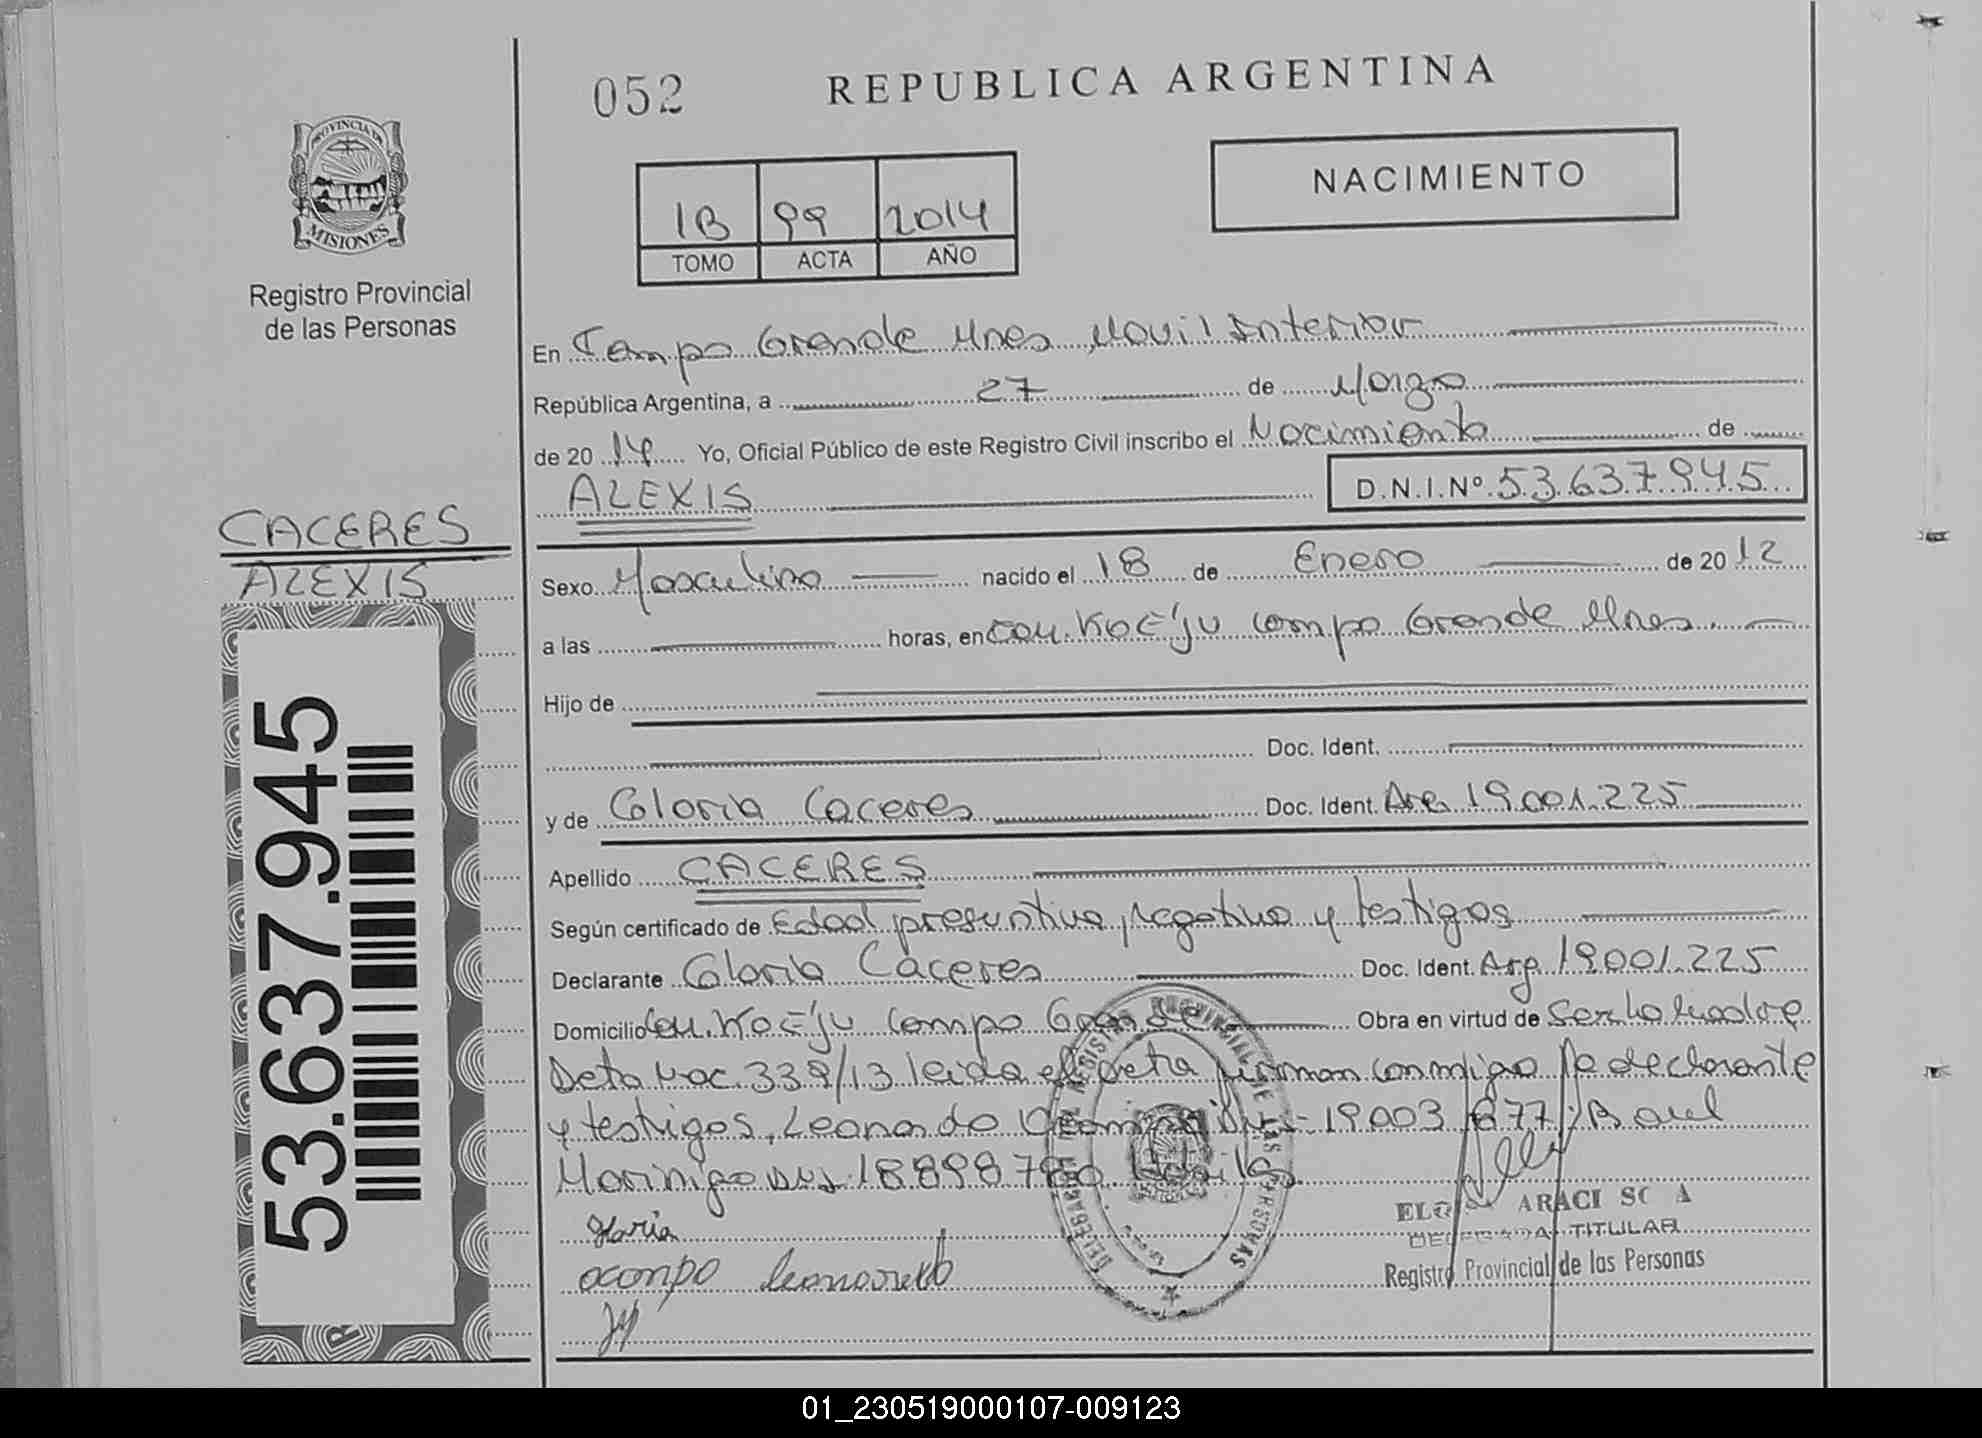 052 REPUBLICA ARGENTINA
NACIMIENTO
1B 99 2014
TOMO ACTA AÑO
PROVINCIA DE
MISIONES
Registro Provincial
de las Personas
En Campo Grande Mnes Movil Interior
República Argentina, a 27 de Marzo
de 2014 Yo, Oficial Público de este Registro Civil inscribo el Nacimiento de
ALEXIS D.N.I.Nº 53.637.945
CACERES
ALEXIS
53.637.945
Sexo Masculino nacido el 18 de Enero de 2012
a las horas, en Com. Ko E'ju Campo Grande Mnes.
Hijo de
Doc. Ident.
y de Gloria Caceres Doc. Ident. Arg 19.001.225
Apellido CACERES
Según certificado de Edad presuntiva, negativo y testigos
Declarante Gloria Caceres Doc. Ident. Arg 19.001.225
Domicilio Com. Ko E'ju Campo Grande Obra en virtud de
Dcto Nac. 339/13 leida el acta firman conmigo la declarante
y testigos, Leonardo 19003 877
DNI 18898780
Gloria
ocampo leonardo
TITULAR
Registro Provincial de las Personas
01_230519000107-009123